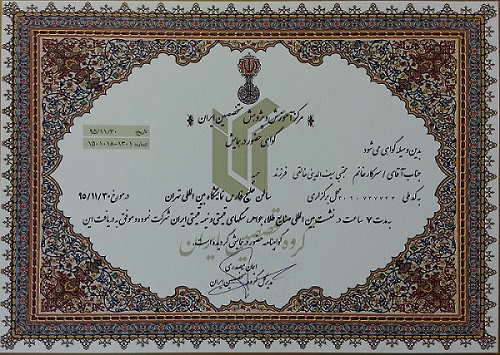 مرکز آموزش و پژوهش متخصصین ایران
گواهی حضور در همایش
تاریخ: ۹۵/۱۱/۳۰
شماره: ۱۳۰۱-۱۵۰۱۰۱۸
بدین وسیله گواهی می شود
جناب آقای / سرکار خانم مجتبی سیف الدینی خالقی فرزند حمید
به کد ملی محل برگزاری سالن خلیج فارس نمایشگاه بین المللی تهران در مورخ ۹۵/۱۱/۳۰
به مدت ۷ ساعت در نشست بین المللی صنایع طلا، جواهر، سنگهای قیمتی و نیمه قیمتی ایران شرکت نموده و موفق به دریافت این
گواهینامه حضور در همایش گردیده است.
گروه متخصصین ایران
ایمان حیدری
مدیر عامل گروه متخصصین ایران